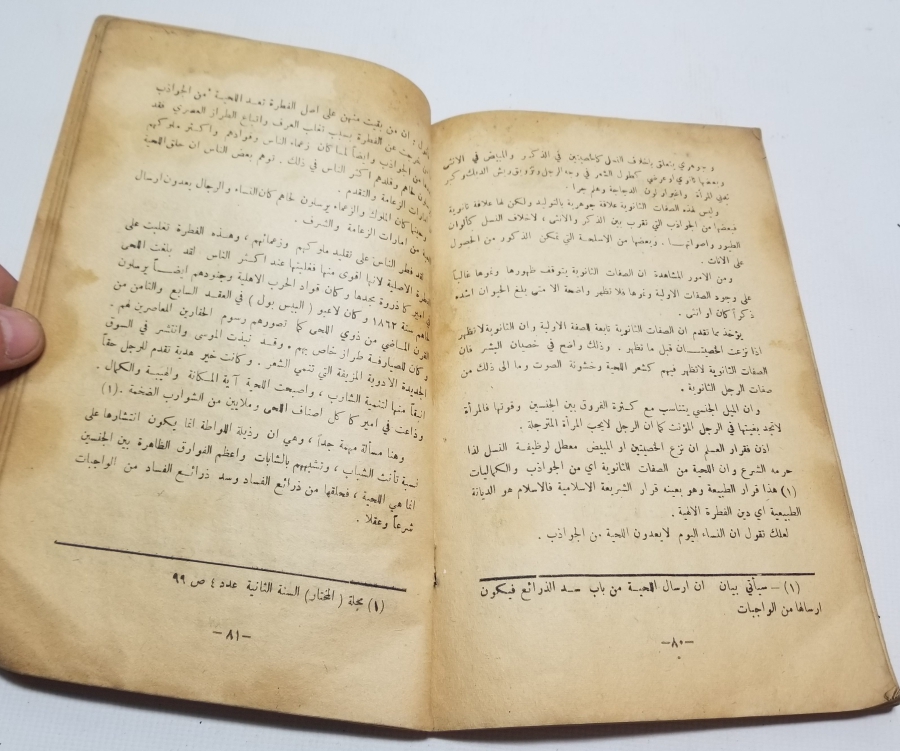 وجوهري يتعلق باشغراف النسل كالخصيتين في الذكر والمبيض في الانثى
وبعضها ثانوي او عرضي كطول الشعر في وجه الرجل وتزويق ريش الديك وكبر
ثديي المرأة واختلاف لون الدجاجة وهلم جرا .
وليس لهذه الصفات الثانوية علاقة جوهرية بالتوليد ولكن لها علاقة ثانوية
فبعضها من الجواذب التي تقرب بين الذكر والانثى ، لاخلاف النسل كألوان
الطيور واصواتهـا . وبعضها من الاسلحة التي تمكن الذكور من الحصول
على الاناث .
ومن الامور المشاهدة ان الصفات الثانوية يتوقف ظهورها ونموها غالباً
على وجود الصفات الاولية ونموها فلا تظهر واضحة الا متى بلغ الحيوان اشده
ذكراً كان او انثى .
يؤخذ مما تقدم ان الصفات الثانوية تابعة للصفة الاولية وان الثانوية لاتظهر
اذا نزعت الخصيتـان قبل ما تظهر . وذلك واضح في خصيان البشر فان
الصفات الثانوية لاتظهر فيهم كشعر اللحية وخشونة الصوت وما الى ذلك من
صفات الرجل الثانوية .
وان الميل الجنسي يتناسب مع كثرة الفروق بين الجنسين وقوتها فالمرأة
لاتجد بغيتها في الرجل المؤنث كما ان الرجل لايحب المرأة المترجلة .
اذن فقرار العلم ان نزع الخصيتين او المبيض معطل لوظيفة النسل لذا
حرمه الشرع وان اللحية من الصفات الثانوية اي من الجواذب والكماليات
(١) هذا قرار الطبيعة وهو بعينه قرار الشريعة الاسلامية فالاسلام هو الديانة
الطبيعية اي دين الفطرة الالهية .
لعلك تقول ان النساء اليوم لايعدون اللحية من الجواذب .
(١) — سيأتي بيان ان ارسال اللحية من باب سد الذرائع فيكون
ارسالها من الواجبات
—٨٠—
ان من بقيت منهن على اصل الفطرة تعد اللحية من الجواذب
خرجت عن الفطرة بسبب تغلب العرف واتباع الطراز العصري فقد
من الجواذب وايضاً لما كان زعماء الناس وقوادهم واكثر ملوكهم
لحاهم وقلدهم اكثر الناس في ذلك . توهم بعض الناس ان حلق اللحية
امارات الزعامة والتقدم .
كان الملوك والزعماء يرسلون لحاهم كان النساء والرجال يعدون ارسال
من امارات الزعامة والشرف .
قد فطر الناس على تقليد ملوكهم وزعمائهم ، وهذه الفطرة تغلبت على
الفطرة الاصلية لانها اقوى منها فغلبتها عند اكثر الناس لقد بلغت اللحى
امير كا ذروة مجدها وكان قواد الحرب الاهلية وجنودهم ايضـاً يرسلون
لحاهم سنة ١٨٦٢ وكان لاعبو ( البيس بول ) في العقد السابع والثامن من
القرن الماضي من ذوي اللحى كما تصورهم رسوم الحفارين المعاصرين لهم .
وكان للصيارفة طراز خاص بهم . وقـد نبذت الموسى وانتشر في السوق
الجديدة الادوية المزيفة التي تنمي الشعر . وكانت خير هدية تقدم للرجل حقاً
انيقاً منها لتنمية الشارب ، واصبحت اللحية آية المكانة والهيبة والكمال .
وذاعت في امير كا كل اصناف اللحى وملايين من الشوارب الضخمة . (١)
وهنا مسألة مهمة جداً ، وهي ان رذيلة اللواطة انما يكون انتشارها على
نسبة تأنث الشباب ، وتشبههم بالشابات واعظم الفوارق الظاهرة بين الجنسين
انما هي اللحية ، فحلقها من ذرائع الفساد وسد ذرائـع الفساد من الواجبات
شرعاً وعقلا .
(١) مجلة ( المختار) السنة الثانية عدد ٤ ص ٩٩
—٨١—